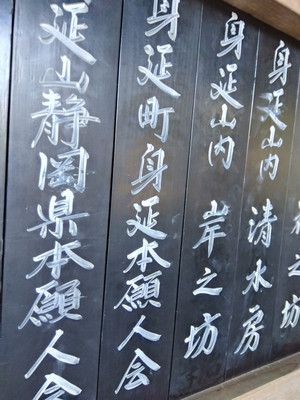 之坊
身延山内 清水房
身延山内 岸之坊
身延町身延本願人会
延山静岡県本願人会